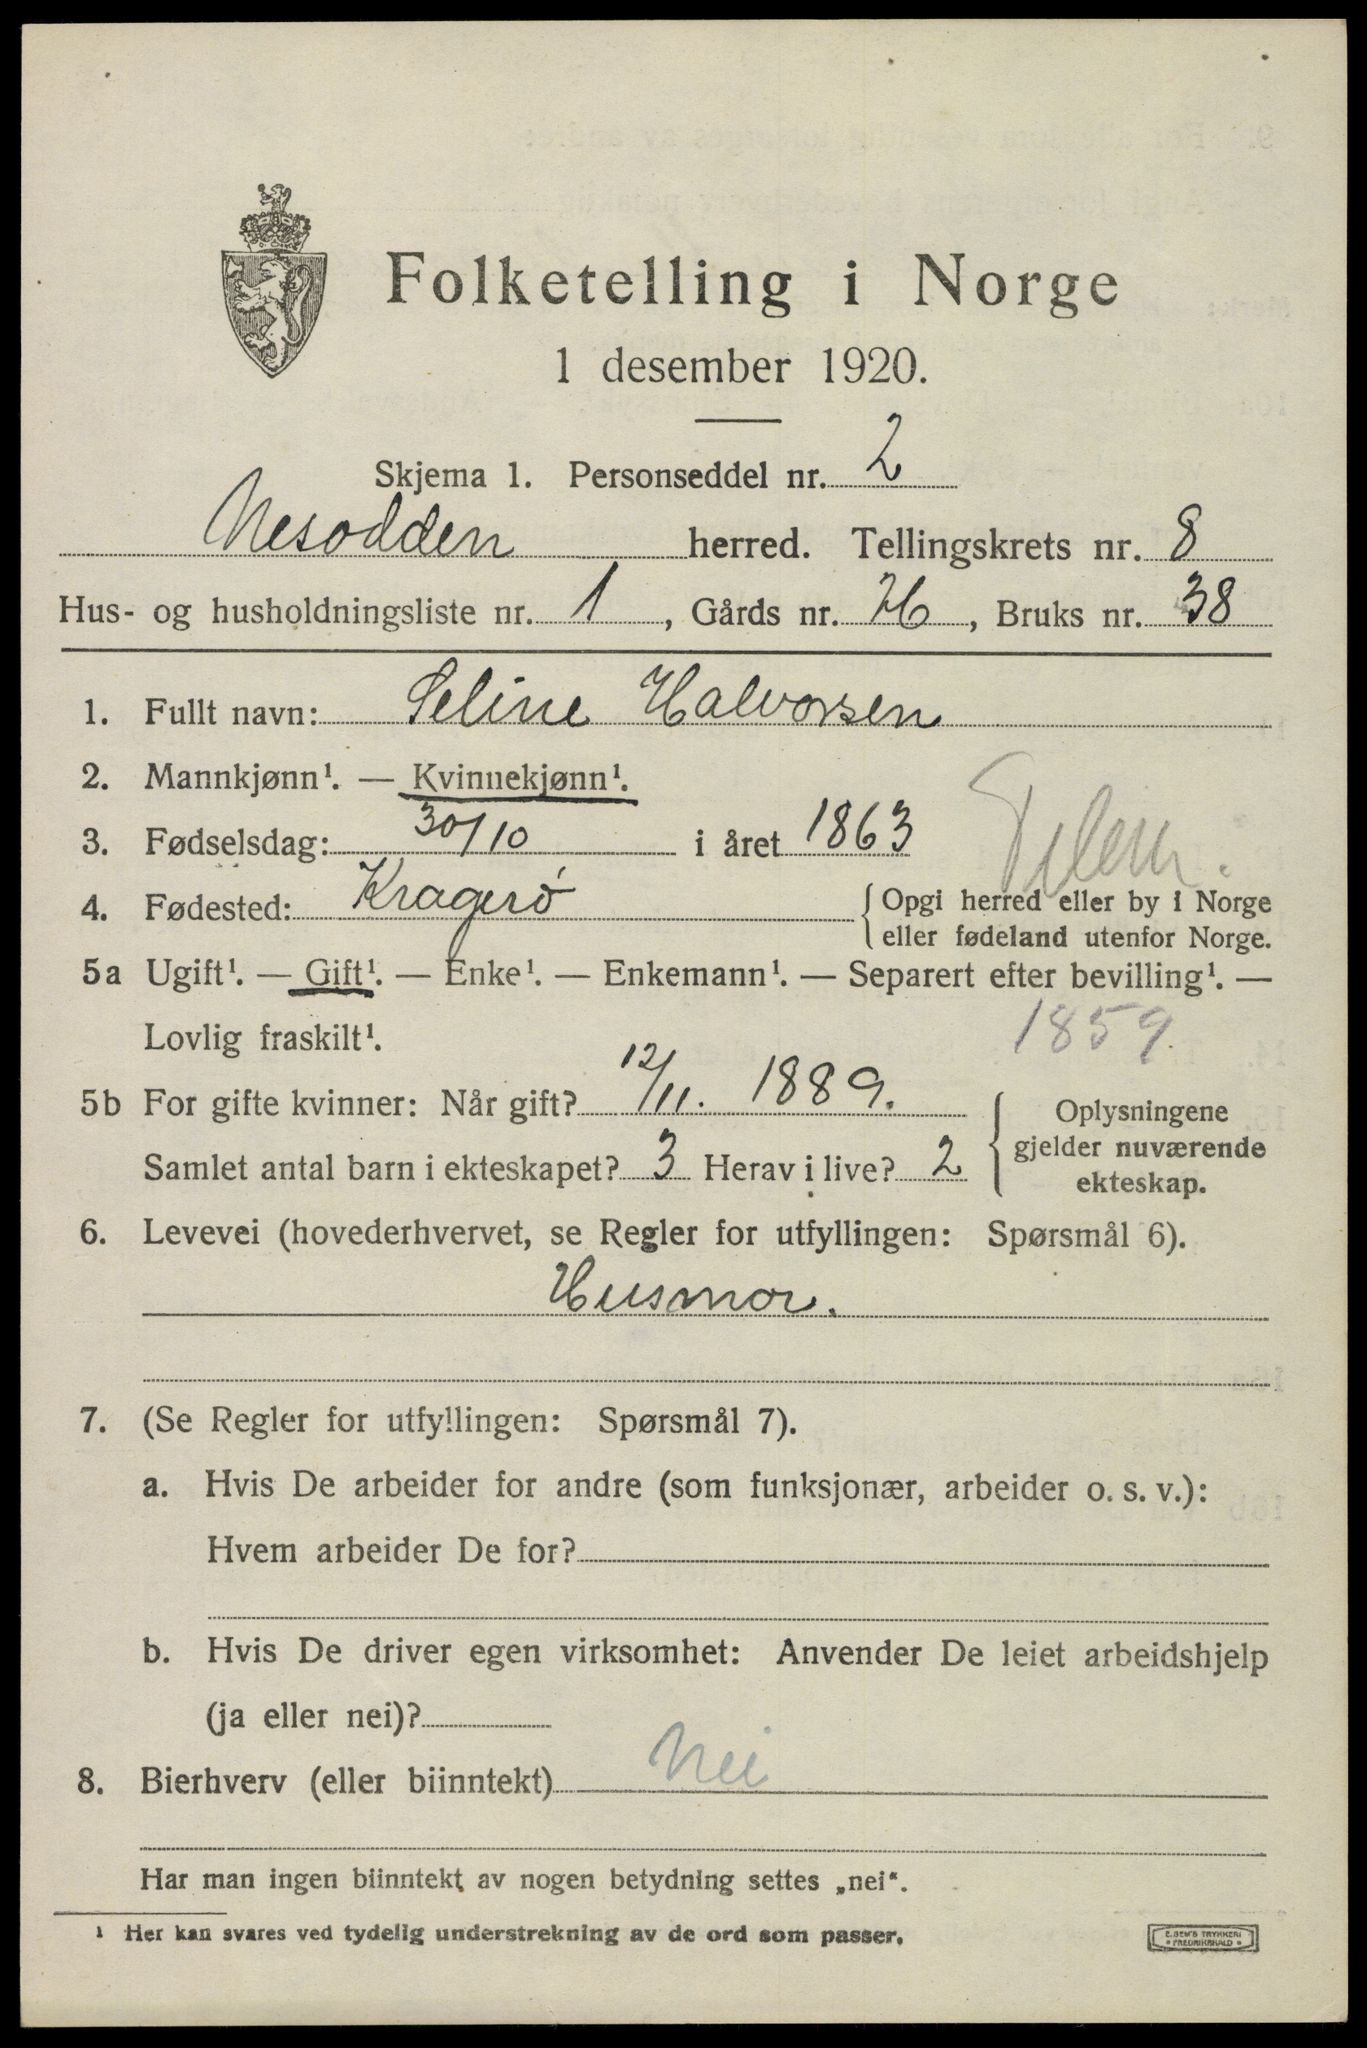 Folketelling i Norge
1 desember 1920.
Skjema 1. Personseddel nr. 2
Nesodden herred. Tellingskrets nr. 8
Hus- og husholdningsliste nr. 1, Gårds nr. 26, Bruks nr. 38
1. Fullt navn: Seline Halvorsen
2. Mannkjønn¹. — Kvinnekjønn¹.
3. Fødselsdag: 30/10 i året 1863
Telem.
4. Fødested: Kragerø { Opgi herred eller by i Norge
eller fødeland utenfor Norge.
5a Ugift¹. — Gift¹. — Enke¹. — Enkemann¹. — Separert efter bevilling¹. —
Lovlig fraskilt¹. 1859
5b For gifte kvinner: Når gift? 12/11. 1889. { Oplysningene
gjelder nuværende
ekteskap.
Samlet antal barn i ekteskapet? 3 Herav i live? 2
6. Levevei (hovederhvervet, se Regler for utfyllingen: Spørsmål 6).
Husmor.
7. (Se Regler for utfyllingen: Spørsmål 7).
a. Hvis De arbeider for andre (som funksjonær, arbeider o. s. v.):
Hvem arbeider De for?
b. Hvis De driver egen virksomhet: Anvender De leiet arbeidshjelp
(ja eller nei)?
8. Bierhverv (eller biinntekt) Nei
Har man ingen biinntekt av nogen betydning settes „nei“.
¹ Her kan svares ved tydelig understrekning av de ord som passer.
E. SEM'S TRYKKERI
FREDRIKSHALD